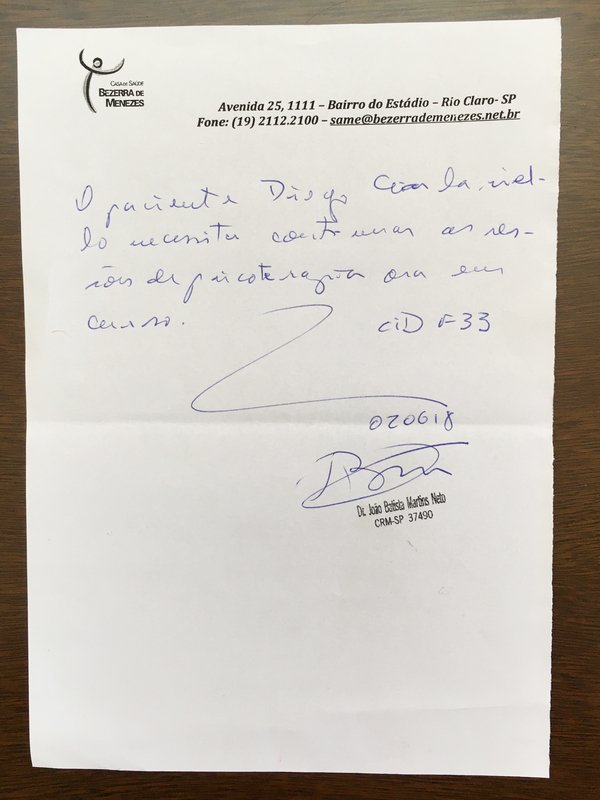 CASA DE SAÚDE
BEZERRA DE
MENEZES
Avenida 25, 1111 – Bairro do Estádio – Rio Claro- SP
Fone: (19) 2112.2100 – same@bezerrademenezes.net.br
O paciente Diego
lo necessita continuar as ses-
sões de psicoterapia ora em
curso. CID F33
020618
Dr. João Batista Martins Neto
CRM-SP 37490